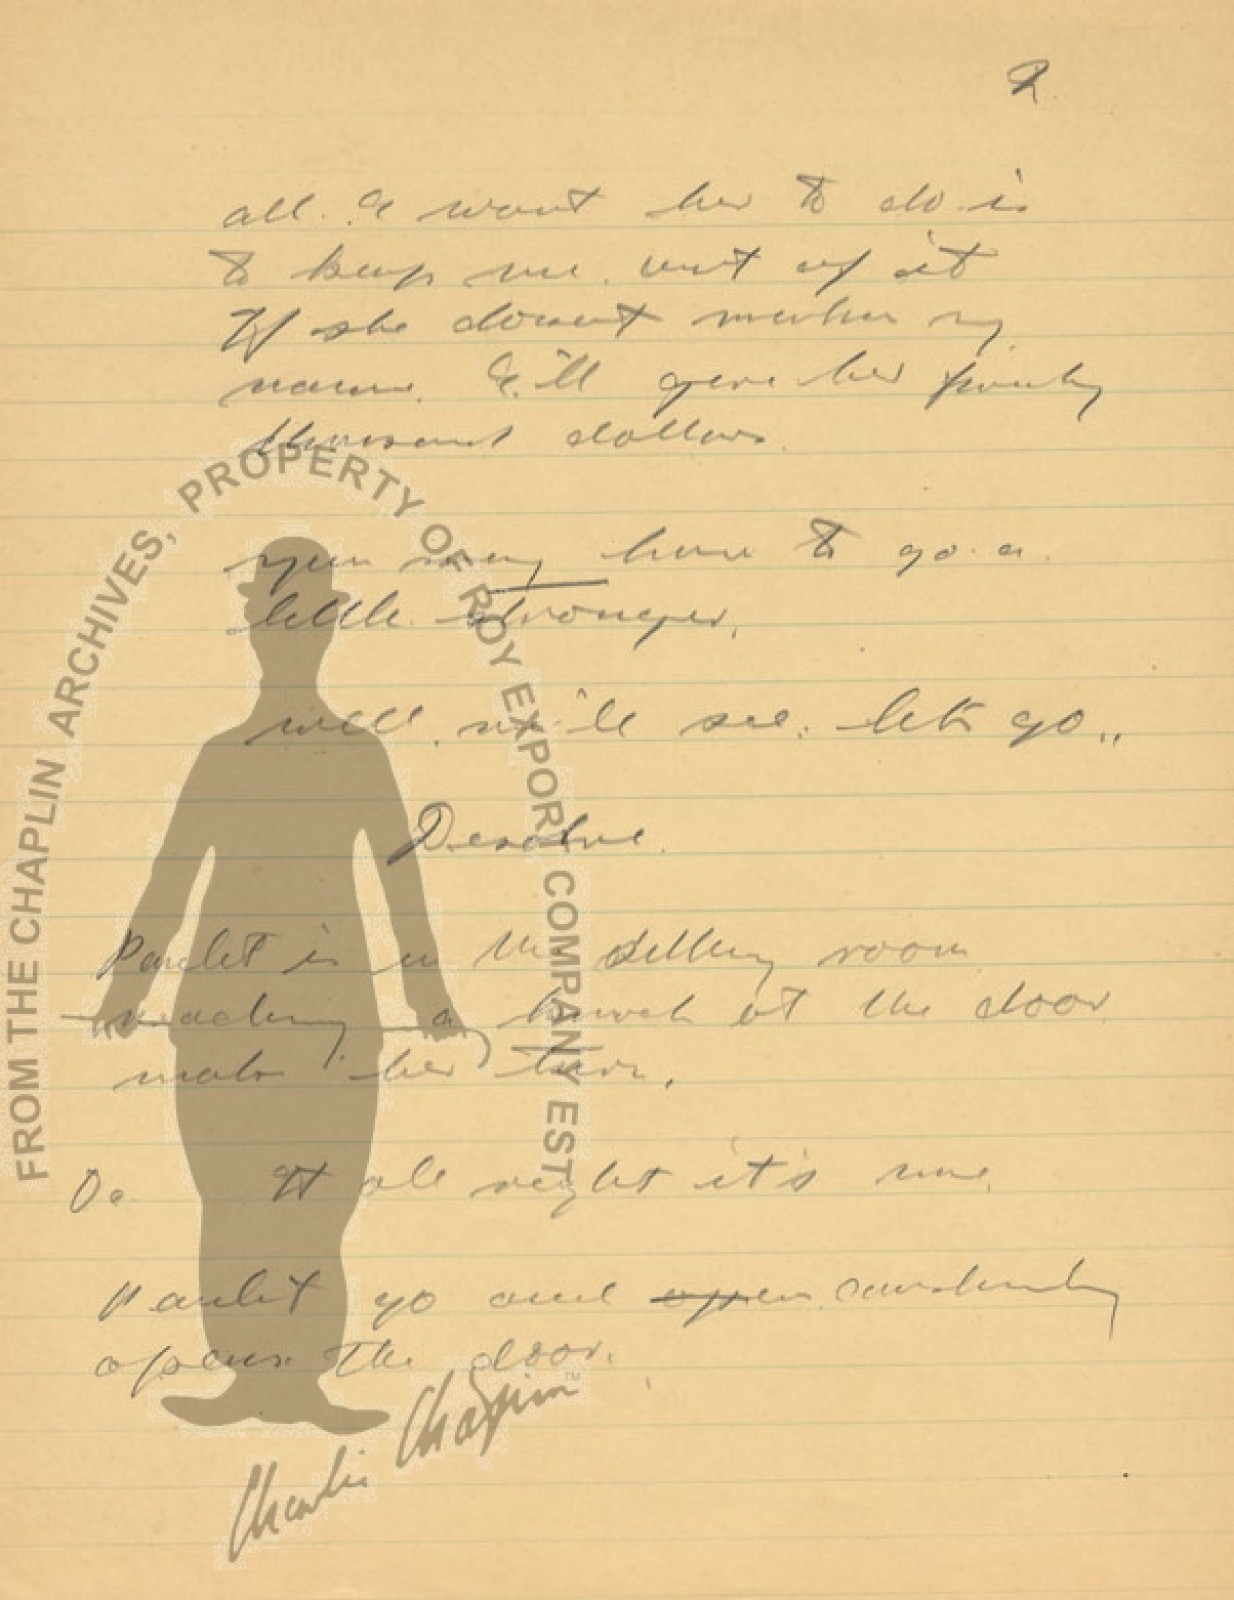 2
all. I want her to do is
to keep me. out of it
If she doesent mention my
name. I'll give her
thousant dollars.
you may have to go a.
little stronger.
well. we'll see. lets go..
Desolve.
Paulet is in the sitting room
reading a knock at the door
makes her turn.
It all right it's me.
Paulet go and open
opens the door.
FROM THE CHAPLIN ARCHIVES, PROPERTY OF ROY EXPORT COMPANY EST
Charlie Chaplin™